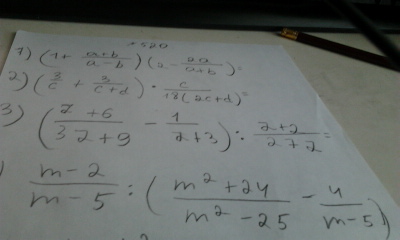 №520
1) (1 + (a+b)/(a-b)) (2 - 2a/(a+b)) =
2) (3/c + 3/(c+d)) · c/(18(2c+d)) =
3) ((z+6)/(3z+9) - 1/(z+3)) : (z+2)/(27z) =
(m-2)/(m-5) : ((m²+24)/(m²-25) - 4/(m-5))